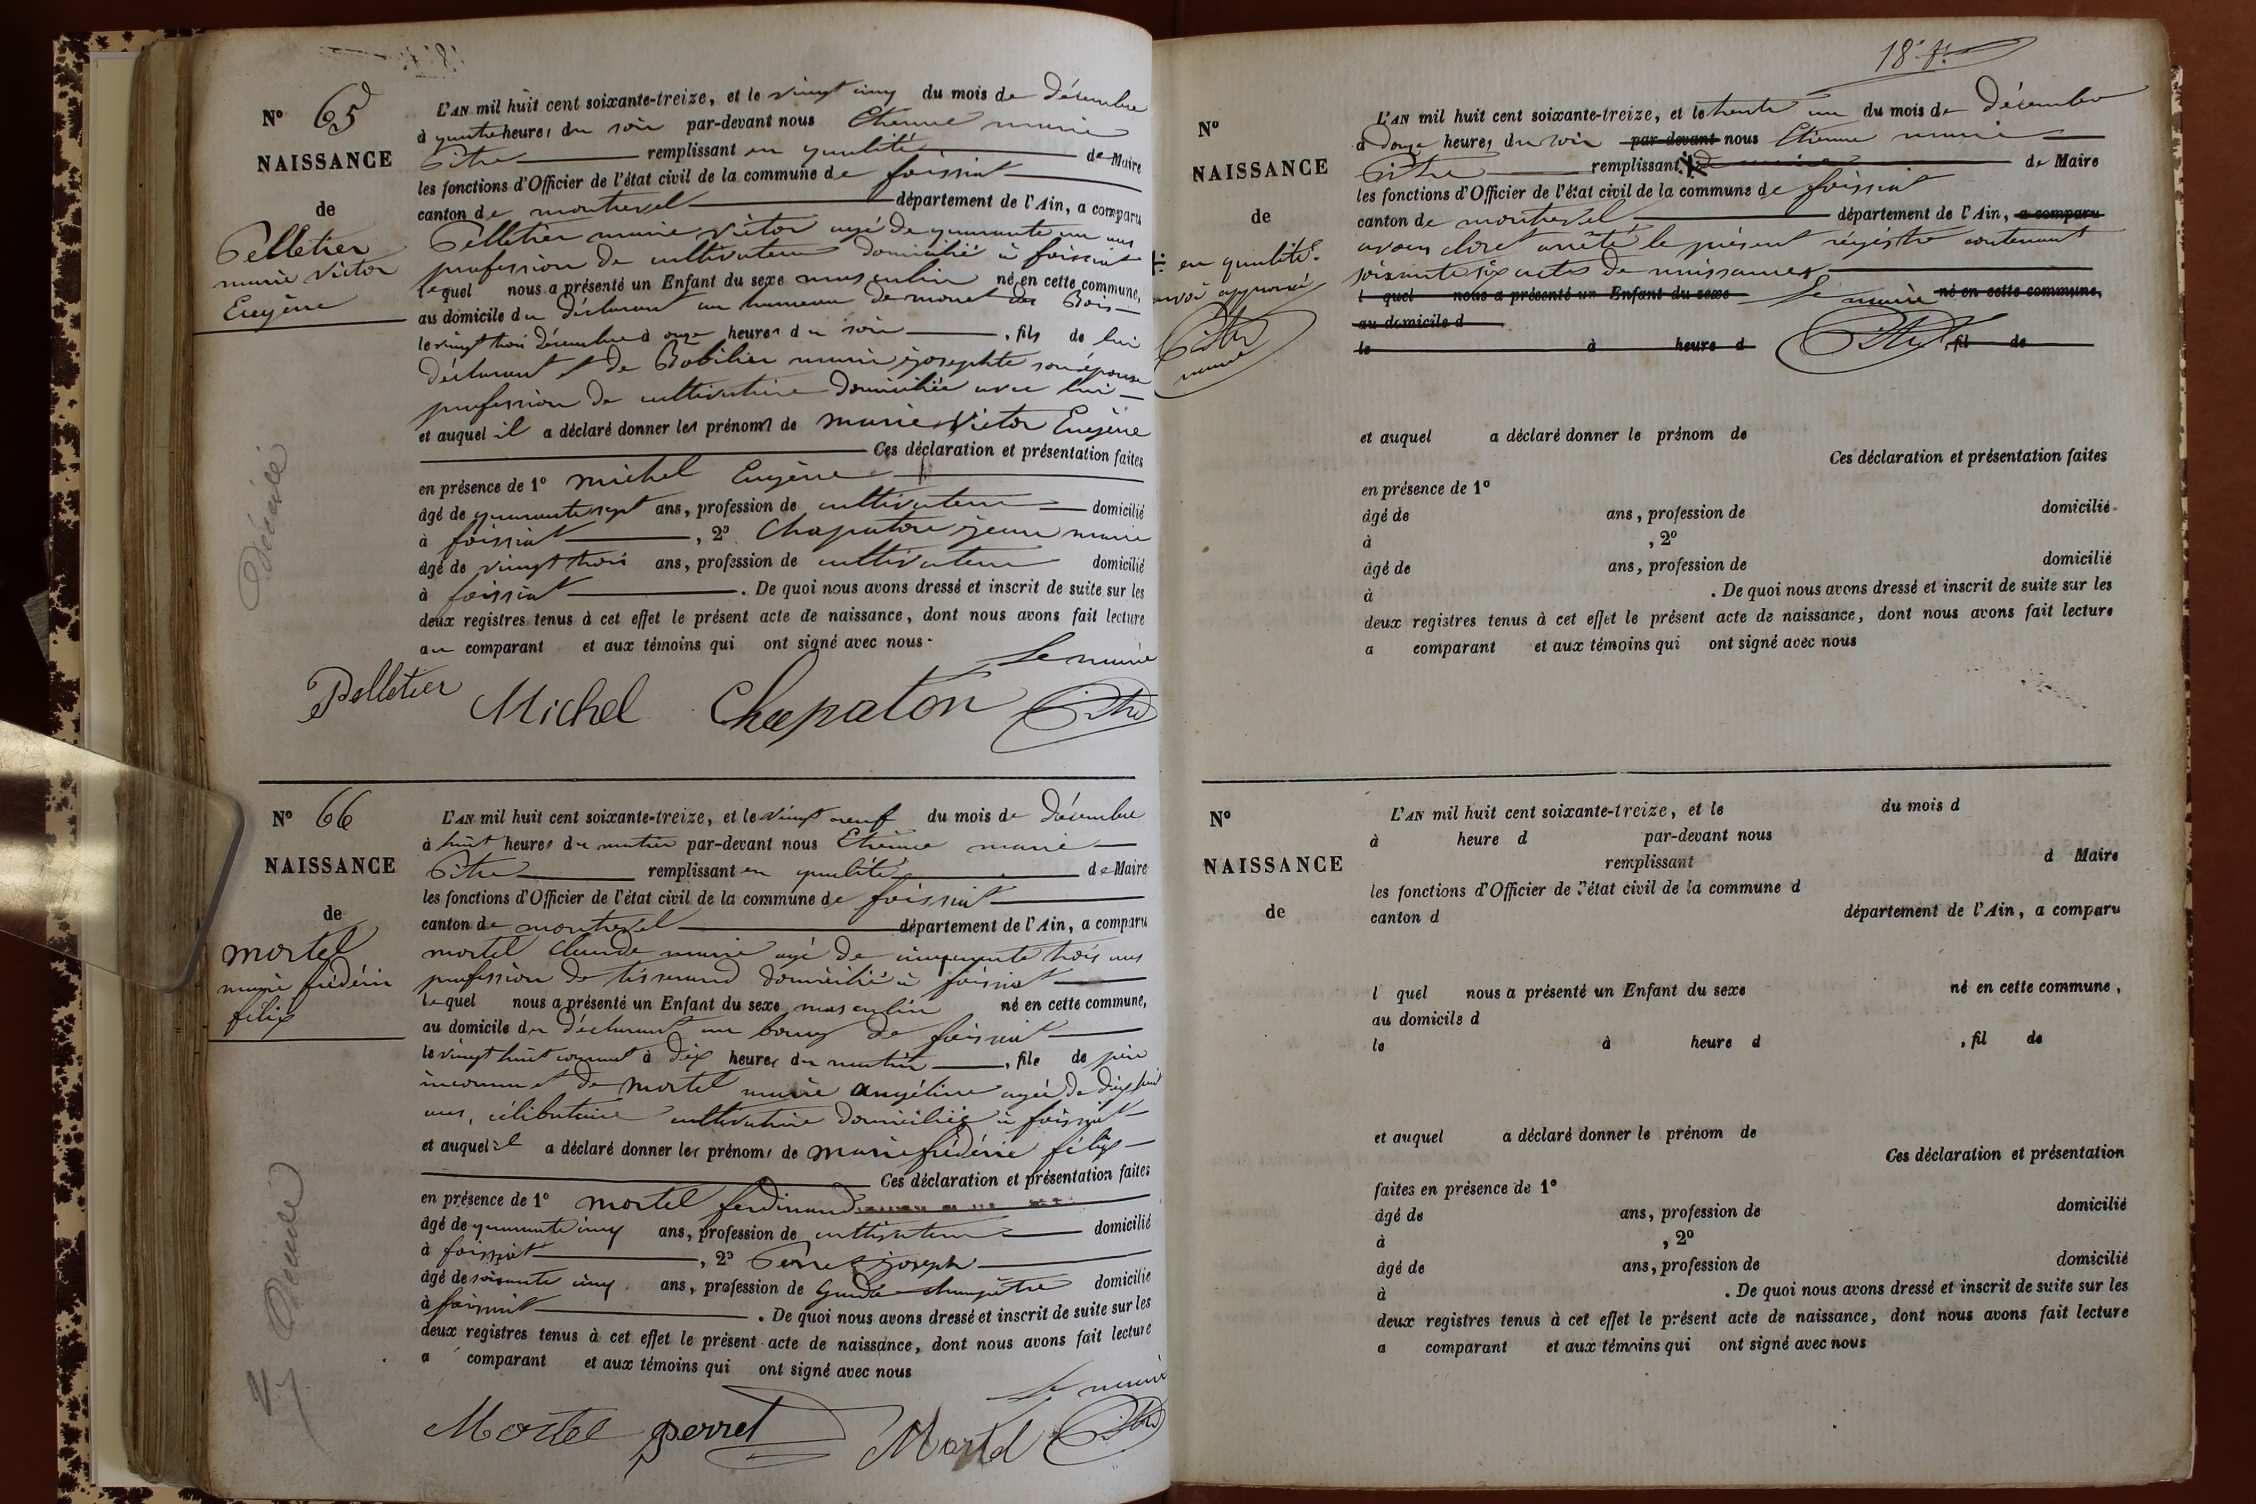 N° 65
NAISSANCE
de
Pelletier
marie Victor
Eugène
Décédé
L'AN mil huit cent soixante-treize, et le vingt cinq du mois de décembre
à quatre heures du soir par-devant nous Etienne marie
Pitre remplissant en qualité de Maire
les fonctions d'Officier de l'état civil de la commune de foissiat
canton de montrevel département de l'Ain, a comparu
Pelletier marie Victor agé de quarante un ans
profession de cultivateur domicilié à foissiat
lequel nous a présenté un Enfant du sexe masculin né en cette commune,
au domicile du déclarant au hameau de des Bois
le vingt trois décembre à onze heures du soir, fils de lui
déclarant et de Bobilier marie josephte son épouse
profession de cultivatrice domiciliée avec lui
et auquel il a déclaré donner les prénoms de marie Victor Eugène
Ces déclaration et présentation faites
en présence de 1° michel Eugène
âgé de quarante sept ans, profession de cultivateur domicilié
à foissiat, 2° Chapaton jean marie
âgé de vingt trois ans, profession de cultivateur domicilié
à foissiat. De quoi nous avons dressé et inscrit de suite sur les
deux registres tenus à cet effet le présent acte de naissance, dont nous avons fait lecture
au comparant et aux témoins qui ont signé avec nous.
Le maire
Pelletier Michel Chapaton Pitre
N° 66
NAISSANCE
de
mortel
marie frédéric
félix
Décédé
L'AN mil huit cent soixante-treize, et le vingt neuf du mois de décembre
à huit heures du matin par-devant nous Etienne marie
Pitre remplissant en qualité de Maire
les fonctions d'Officier de l'état civil de la commune de foissiat
canton de montrevel département de l'Ain, a comparu
mortel claude marie agé de cinquante trois ans
profession de tisserand domicilié à foissiat
lequel nous a présenté un Enfant du sexe masculin né en cette commune,
au domicile du déclarant au bourg de foissiat
le vingt huit courant à dix heures du matin, fils de père
inconnu et de mortel marie angéline agée de dix huit
ans, célibataire cultivatrice domiciliée à foissiat
et auquel il a déclaré donner les prénoms de marie frédéric félix
Ces déclaration et présentation faites
en présence de 1° mortel ferdinand
âgé de quarante cinq ans, profession de cultivateur domicilié
à foissiat, 2° Perret joseph
âgé de soixante cinq ans, profession de Garde champêtre domicilié
à foissiat. De quoi nous avons dressé et inscrit de suite sur les
deux registres tenus à cet effet le présent acte de naissance, dont nous avons fait lecture
a comparant et aux témoins qui ont signé avec nous
Le maire
Mortel perret Mortel Pitre
18 ft.
N°
NAISSANCE
de
en qualité
renvoi approuvé
Pitre
maire
L'AN mil huit cent soixante-treize, et le trente un du mois de décembre
à douze heures du soir par-devant nous Etienne marie
Pitre remplissant de Maire
les fonctions d'Officier de l'état civil de la commune de foissiat
canton de montrevel département de l'Ain, a comparu
avons clos et arrêté le présent régistre contenant
soixante six actes de naissances
l quel nous a présenté un Enfant du sexe Le maire né en cette commune,
au domicile d
le à heure d Pitre, fil de
et auquel a déclaré donner le prénom de
Ces déclaration et présentation faites
en présence de 1°
âgé de ans, profession de domicilié
à , 2°
âgé de ans, profession de domicilié
à . De quoi nous avons dressé et inscrit de suite sur les
deux registres tenus à cet effet le présent acte de naissance, dont nous avons fait lecture
a comparant et aux témoins qui ont signé avec nous
N°
NAISSANCE
de
L'AN mil huit cent soixante-treize, et le du mois d
à heure d par-devant nous
remplissant d Maire
les fonctions d'Officier de l'état civil de la commune d
canton d département de l'Ain, a comparu
l quel nous a présenté un Enfant du sexe né en cette commune,
au domicile d
le à heure d , fil de
et auquel a déclaré donner le prénom de
Ces déclaration et présentation
faites en présence de 1°
âgé de ans, profession de domicilié
à , 2°
âgé de ans, profession de domicilié
à . De quoi nous avons dressé et inscrit de suite sur les
deux registres tenus à cet effet le présent acte de naissance, dont nous avons fait lecture
a comparant et aux témoins qui ont signé avec nous